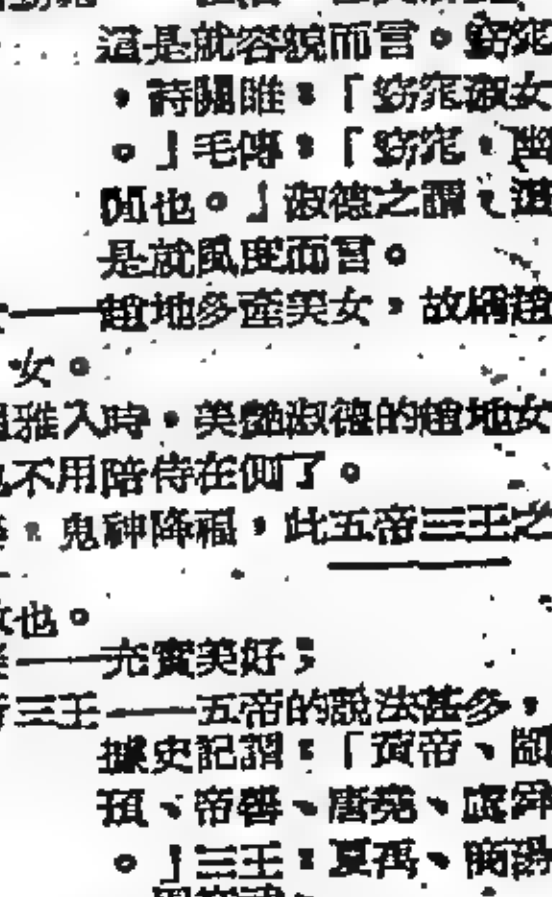 這是就容貌而言。窈窕
，詩關雎：「窈窕淑女
。」毛傳：「窈窕，幽
閒也。」淑德之謂，這
是就風度而言。
——趙地多產美女，故稱趙
女。
雅入時，美艷淑德的趙地女
不用陪侍在側了。
。鬼神降福，此五帝三王之
也。
——充實美好；
三王——五帝的說法甚多，
據史記謂：「黃帝、顓
頊、帝嚳、唐堯、虞舜
。」三王：夏禹、商湯